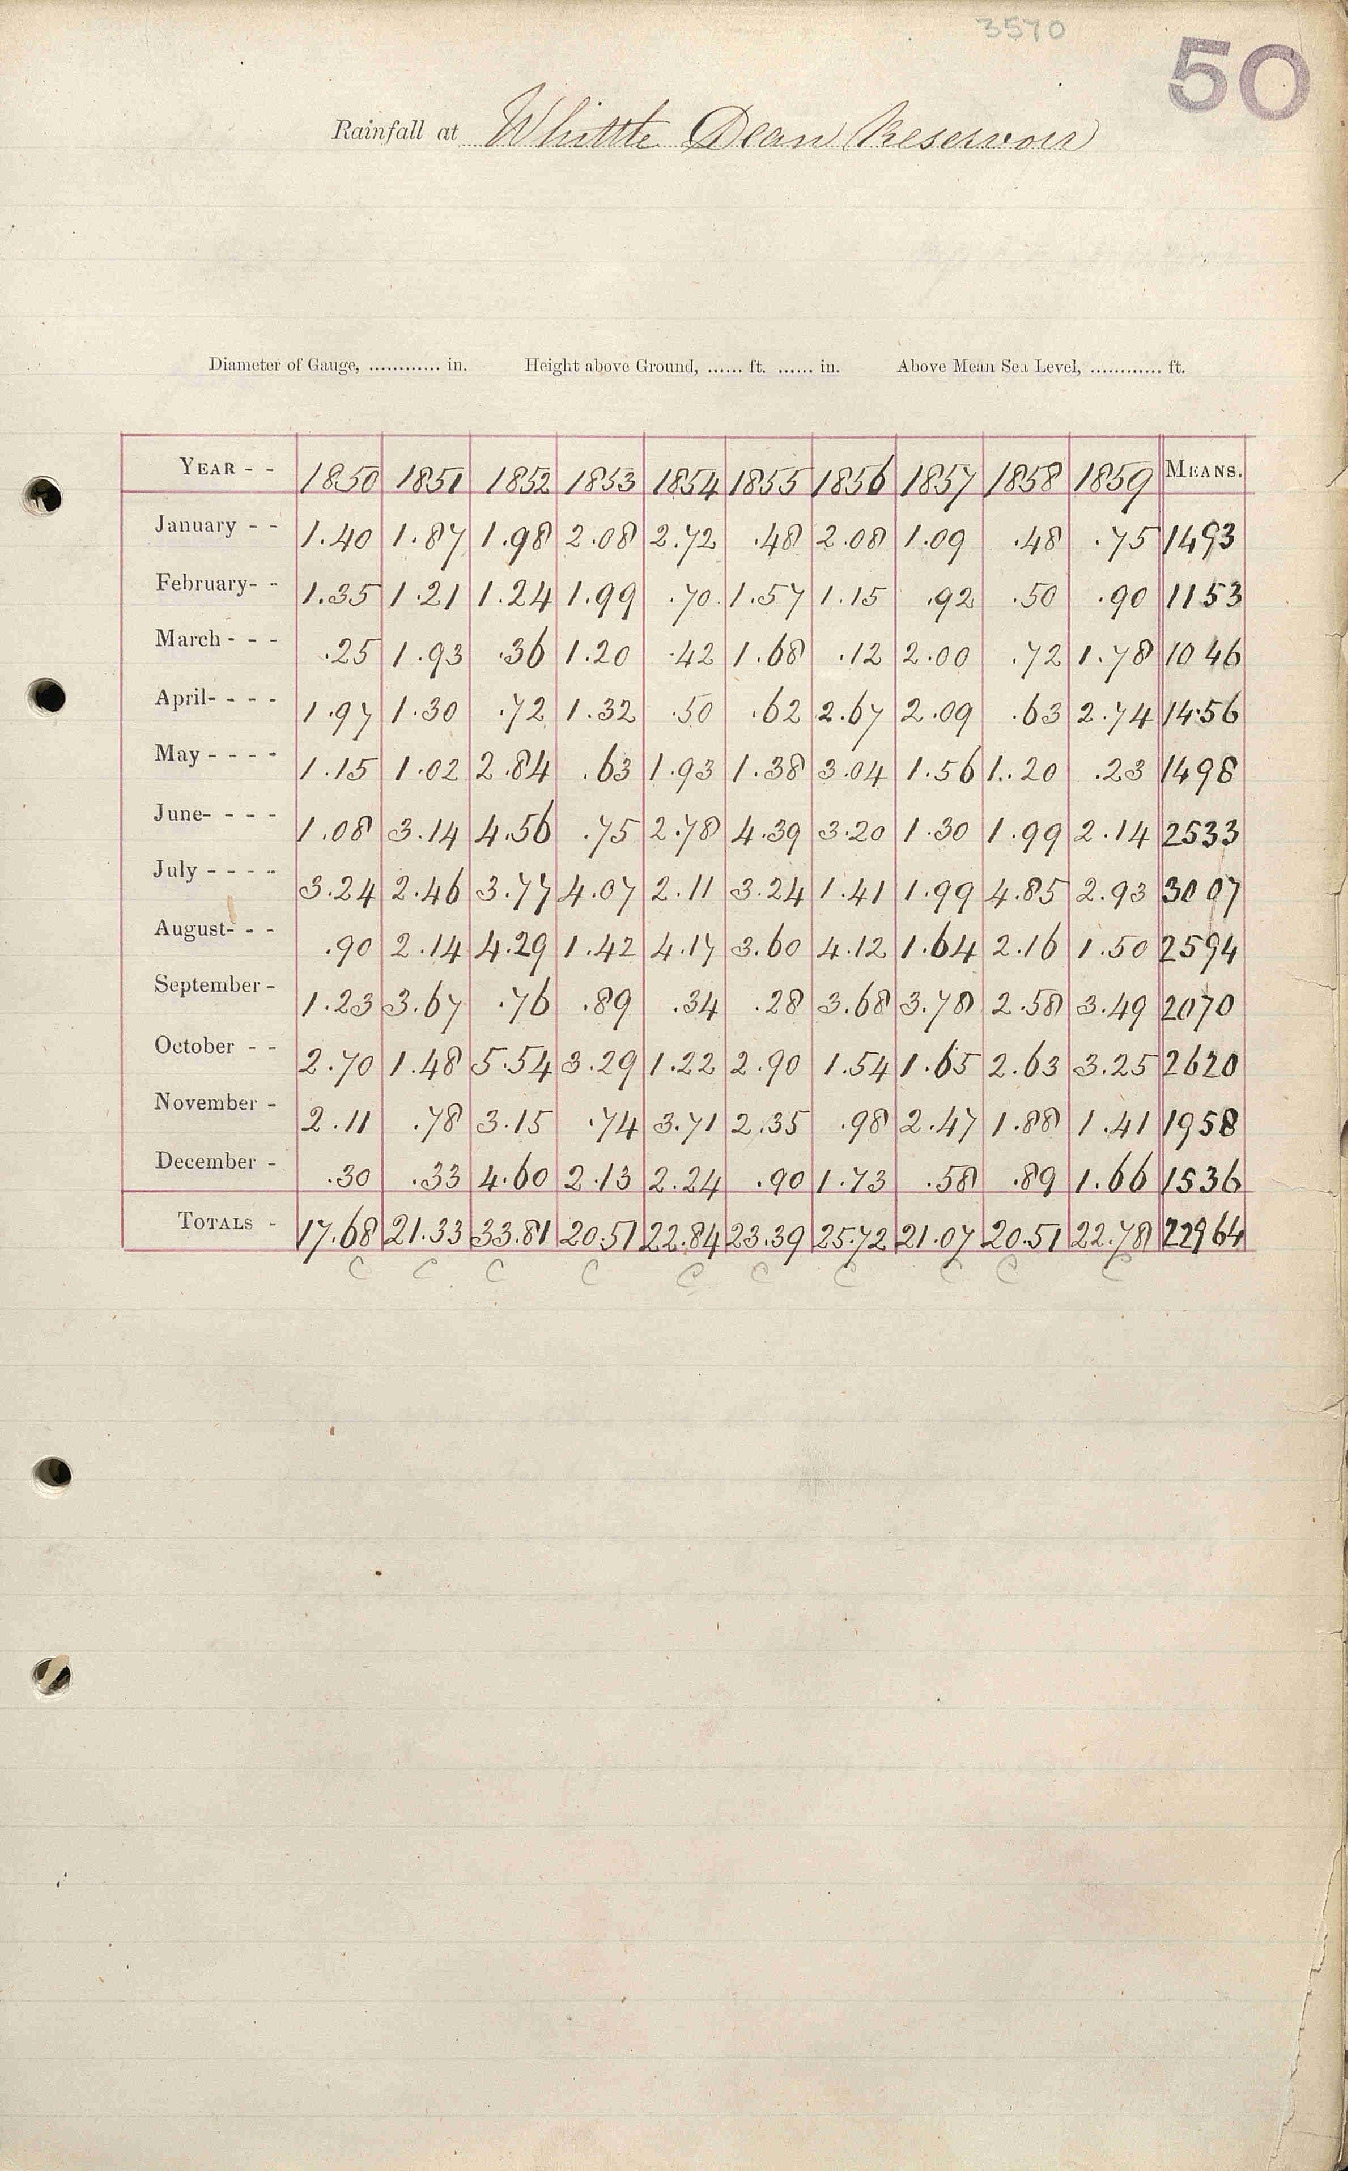 3570
50
Rainfall at Whittle Dean Reservoir
Diameter of Gauge, ............ in. Height above Ground, ...... ft. ...... in. Above Mean Sea Level, ............ ft.
YEAR - - 1850 1851 1852 1853 1854 1855 1856 1857 1858 1859 MEANS.
January - - 1.40 1.87 1.98 2.08 2.72 .48 2.08 1.09 .48 .75 1493
February- - 1.35 1.21 1.24 1.99 .70 1.57 1.15 .92 .50 .90 1153
March - - - .25 1.93 .36 1.20 .42 1.68 .12 2.00 .72 1.78 1046
April- - - - 1.97 1.30 .72 1.32 .50 .62 2.67 2.09 .63 2.74 14.56
May - - - - 1.15 1.02 2.84 .63 1.93 1.38 3.04 1.56 1.20 .23 1498
June- - - - 1.08 3.14 4.56 .75 2.78 4.39 3.20 1.30 1.99 2.14 2533
July - - - - 3.24 2.46 3.77 4.07 2.11 3.24 1.41 1.99 4.85 2.93 3007
August- - - .90 2.14 4.29 1.42 4.17 3.60 4.12 1.64 2.16 1.50 2594
September - 1.23 3.67 .76 .89 .34 .28 3.68 3.78 2.58 3.49 2070
October - - 2.70 1.48 5.54 3.29 1.22 2.90 1.54 1.65 2.63 3.25 2620
November - 2.11 .78 3.15 .74 3.71 2.35 .98 2.47 1.88 1.41 1958
December - .30 .33 4.60 2.13 2.24 .90 1.73 .58 .89 1.66 1536
TOTALS - 17.68 21.33 33.81 20.51 22.84 23.39 25.72 21.07 20.51 22.78 22964
C C C C C C C C C C